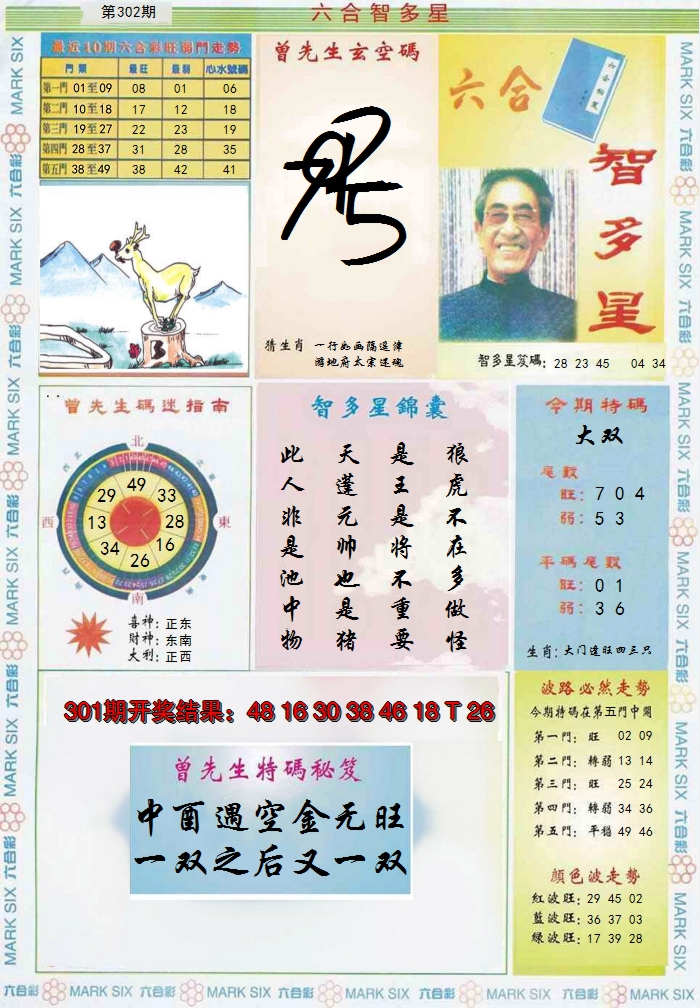 第302期
六合智多星
最近10期六合彩旺弱門走勢
門類 最旺 最弱 心水號碼
第一門 01至09 08 01 06
第二門 10至18 17 12 18
第三門 19至27 22 23 19
第四門 28至37 31 28 35
第五門 38至49 38 42 41
曾先生玄空碼
猜生肖 一行如画隔遥津
游地府太宗还魂
六合
智多星
智多星笈碼: 28 23 45 04 34
曾先生碼迷指南
北
西
東
南
49
29 33
13 28
34 16
26
喜神: 正东
財神: 东南
大利: 正西
智多星錦囊
此 天 是 狼
人 蓬 王 虎
非 元 是 不
是 帅 将 在
池 也 不 多
中 是 重 做
物 猪 要 怪
今期特碼
大双
尾數
旺: 7 0 4
弱: 5 3
平碼尾數
旺: 0 1
弱: 3 6
生肖: 大门逢旺四三只
301期开奖结果: 48 16 30 38 46 18 T 26
曾先生特碼秘笈
中酉遇空金无旺
一双之后又一双
波路必然走勢
今期特碼在第五門中開
第一門: 旺 02 09
第二門: 轉弱 13 14
第三門: 旺 25 24
第四門: 轉弱 34 36
第五門: 平穩 49 46
顏色波走勢
紅波旺: 29 45 02
藍波旺: 36 37 03
綠波旺: 17 39 28
六合彩 MARK SIX 六合彩 MARK SIX 六合彩 MARK SIX 六合彩 MARK SIX 六合彩